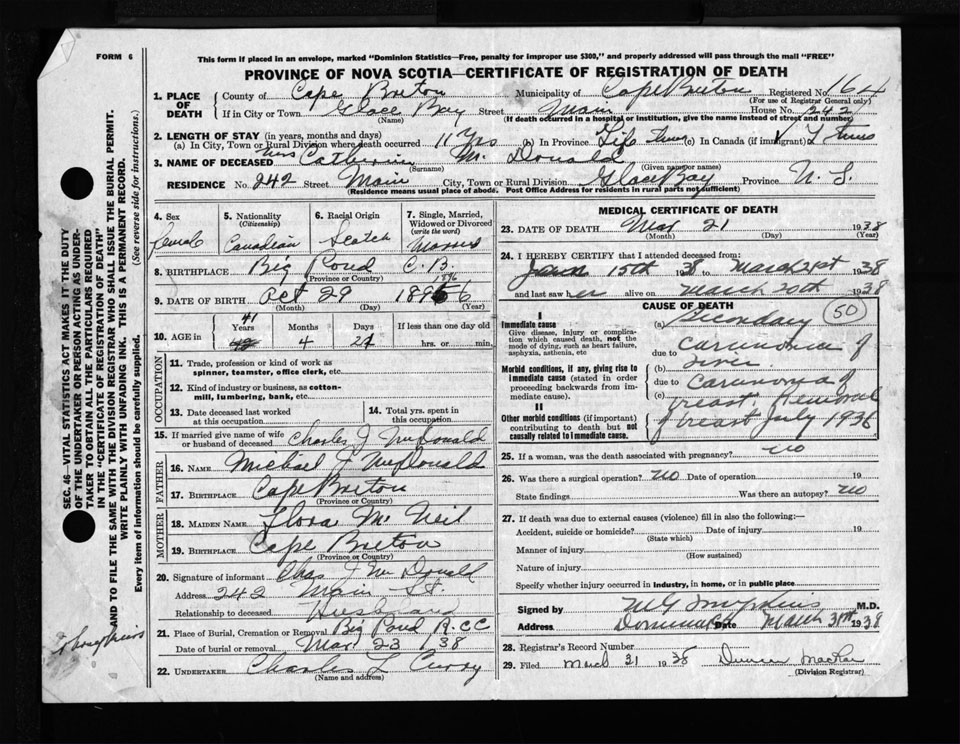 FORM 6
This form if placed in an envelope, marked "Dominion Statistics—Free, penalty for improper use $300," and properly addressed will pass through the mail "FREE"
PROVINCE OF NOVA SCOTIA—CERTIFICATE OF REGISTRATION OF DEATH
1. PLACE OF DEATH County of Cape Breton Municipality of Cape Breton Registered No. 164
(For use of Registrar General only)
If in City or Town Glace Bay Street Main House No. 242
(Name) (If death occurred in a hospital or institution, give name instead of street and number)
2. LENGTH OF STAY (in years, months and days)
(a) In City, Town or Rural Division where death occurred 11 Yrs (b) In Province Life time (c) In Canada (if immigrant)
3. NAME OF DECEASED Mrs Catherine McDonald
(Surname) (Given name or names)
RESIDENCE No. 242 Street Main City, Town or Rural Division Glace Bay Province N. S.
(Residence means usual place of abode. Post Office Address for residents in rural parts not sufficient)
4. Sex Female
5. Nationality (Citizenship) Canadian
6. Racial Origin Scotch
7. Single, Married, Widowed or Divorced (write the word)
8. BIRTHPLACE Big Pond C. B.
(Province or Country)
9. DATE OF BIRTH Oct 29 1896
(Month) (Day) (Year)
10. AGE in Years 41 Months 4 Days If less than one day old hrs. or min.
OCCUPATION
11. Trade, profession or kind of work as spinner, teamster, office clerk, etc.
12. Kind of industry or business, as cotton-mill, lumbering, bank, etc.
13. Date deceased last worked at this occupation
14. Total yrs. spent in this occupation
15. If married give name of wife or husband of deceased Charles J McDonald
FATHER
16. NAME Michael J McDonald
17. BIRTHPLACE Cape Breton
(Province or Country)
MOTHER
18. MAIDEN NAME Flora McNeil
19. BIRTHPLACE Cape Breton
(Province or Country)
20. Signature of informant Chas J McDonald
Address 242 Main St.
Relationship to deceased Husband
21. Place of Burial, Cremation or Removal Big Pond R.CC
Date of burial or removal Mar 23 / 38
22. UNDERTAKER Charles L Curry
(Name and address)
MEDICAL CERTIFICATE OF DEATH
23. DATE OF DEATH Mar 21 1938
(Month) (Day) (Year)
24. I HEREBY CERTIFY that I attended deceased from:
Jan 15th 1938 to March 21st 1938
and last saw her alive on March 20th 1938
CAUSE OF DEATH 50
I
Immediate cause
Give disease, injury or complication which caused death, not the mode of dying, such as heart failure, asphyxia, asthenia, etc
(a) Secondary
due to carcinoma of
(b) liver
Morbid conditions, if any, giving rise to immediate cause (stated in order proceeding backwards from immediate cause).
due to Carcinoma of
(c) breast. Removal
of breast July 1936
II
Other morbid conditions (if important) contributing to death but not causally related to immediate cause.
25. If a woman, was the death associated with pregnancy? no
26. Was there a surgical operation? no Date of operation 19
State findings Was there an autopsy? no
27. If death was due to external causes (violence) fill in also the following:—
Accident, suicide or homicide? Date of injury 19
(State which)
Manner of injury
(How sustained)
Nature of injury
Specify whether injury occurred in industry, in home, or in public place
Signed by M.D.
Address Dominion Date March 31st 1938
28. Registrar's Record Number
29. Filed March 31 1938
(Division Registrar)
SEC. 46—VITAL STATISTICS ACT MAKES IT THE DUTY OF THE UNDERTAKER OR PERSON ACTING AS UNDERTAKER TO OBTAIN ALL THE PARTICULARS REQUIRED IN THE "CERTIFICATE OF REGISTRATION OF DEATH" AND TO FILE THE SAME WITH THE DIVISION REGISTRAR WHO SHALL ISSUE THE BURIAL PERMIT.
WRITE PLAINLY WITH UNFADING INK. THIS IS A PERMANENT RECORD.
Every item of information should be carefully supplied. (See reverse side for instructions.)